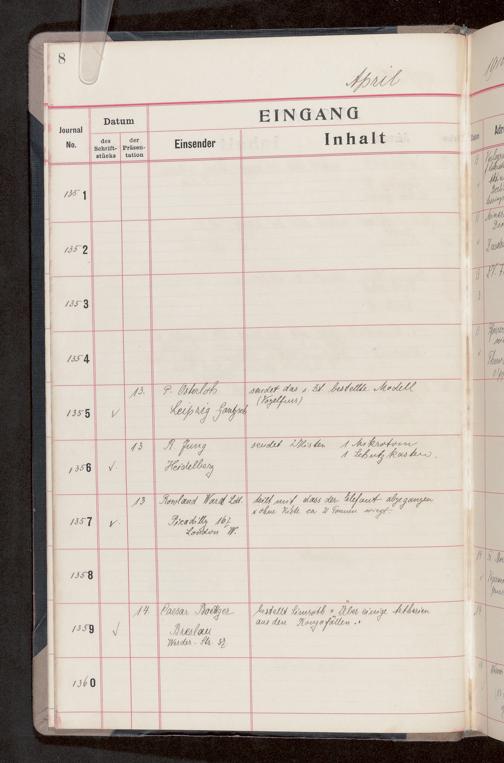 8
April
Journal No.
Datum
des Schrift-stücks
der Präsen-tation
EINGANG
Einsender
Inhalt
1351
1352
1353
1354
1355 √ 13. P. Osterloh sendet das s. Zt. bestellte Modell
Leipzig Gautzsch (Vogelfuss)
1356 √. 13 R. Jung sendet 2 Kisten 1 Mikrotom
Heidelberg 1 Schutzkasten.
1357 √. 13 Rowland Ward Ltd. teilt mit dass der Elefant abgegangen
Piccadilly 167 ohne Kiste ca 2 Tonnen wiegt.
London W.
1358
1359 √ 14. Caesar Boettger bestellt Simroth "Über einige Aetherien
Breslau aus den Kongofällen."
Werder-Str. 
1360